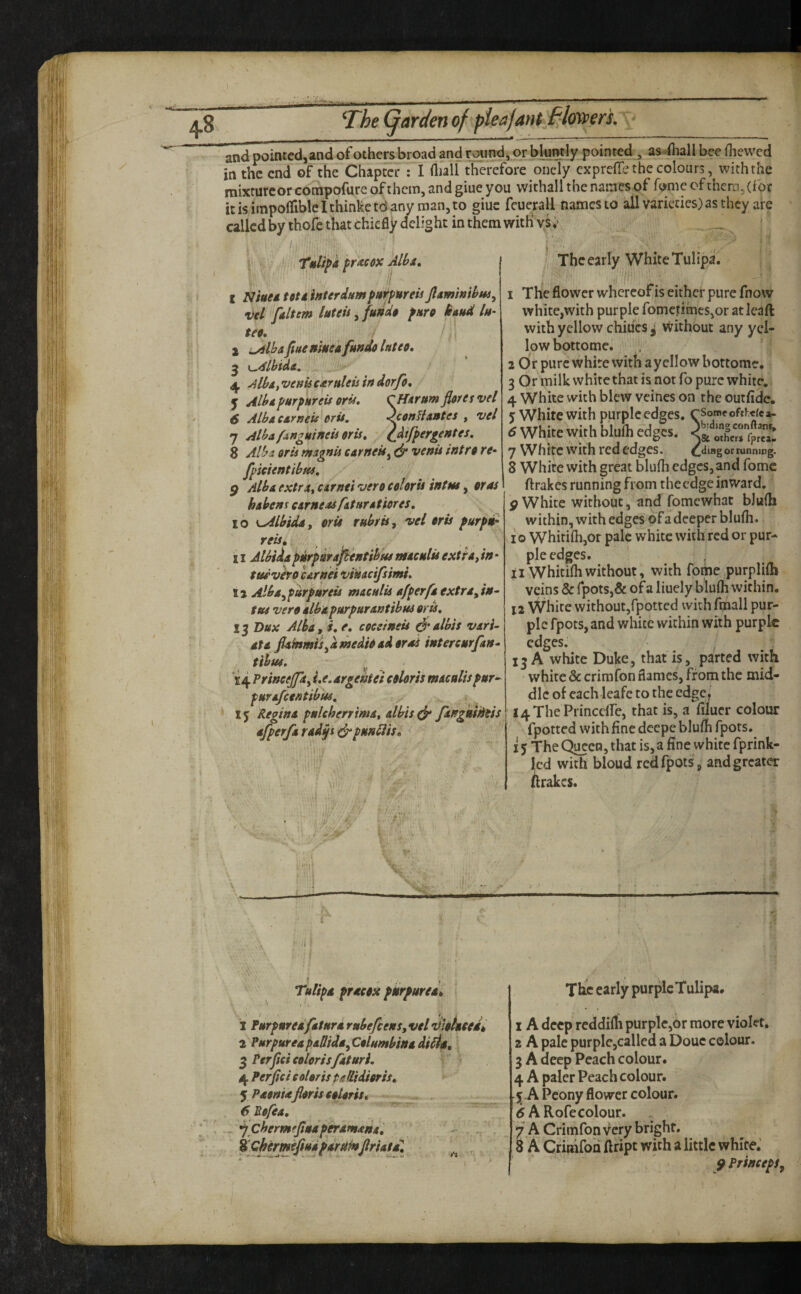 48 The Garden of pleasant Flowers.
and pointed, and of others broad and round, or bluntly pointed, as ſhall bee ſhewed
in the end of the Chapter : I ſhall therefore onely expreſſe the colours, with the
mixture or compoſure of them, and giue you withall the names of ſome of them, (for
it is impoſſible I thinke to any man, to giue ſeuerall names to all varieties) as they are
called by thoſe that chiefly delight in them with vs.
Tulipa præcox Alba.
1 Niuea tota interdum purpureis ſtaminibus,
vel ſaltem luteis, fundo puro haud lu-
teo.
2 Alba ſiue niuea fundo luteo.
3 Albida.
4 Alba, venis cæruleis in dorſo.
5 Alba purpureis oris. Harum flores vel
6 Alba carneis oris. conſtantes, vel
7 Alba ſanguineis oris. diſpergentes.
8 Alba oris magnis carneis, & venis intro re-
ſpicientibus.
9 Alba extra, carnei vero coloris intus, oras
habens carneas ſaturatiores.
10 Albida, oris rubris, vel oris purpu-
reis.
11 Albida purpuraſcentibus maculis extra, in-
tus vero carnei viuaciſsimi.
12 Alba, purpureis maculis aſperſa extra, in-
tus vero alba purpurantibus oris.
13 Dux Alba, i. e. coccineis & albis vari-
ata flammis, a medio ad oras intercurſan-
tibus.
14 Princeſſa, i.e. argentei coloris maculis pur-
puraſcentibus.
15 Regina pulcherrima, albis & ſanguineis
aſperſa radijs & punctis.
The early White Tulipa.
1 The flower whereof is either pure ſnow
white, with purple ſometimes, or at leaſt
with yellow chiues, without any yel-
low bottome.
2 Or pure white with a yellow bottome.
3 Or milk white that is not ſo pure white.
4 White with blew veines on the outſide.
5 White with purple edges. Some of theſe a-
biding conſtant,
6 White with bluſh edges. & others ſprea-
7 White with red edges. ding or running.
8 White with great bluſh edges, and ſome
ſtrakes running from the edge inward.
9 White without, and ſomewhat bluſh
within, with edges of a deeper bluſh.
10 Whitiſh, or pale white with red or pur-
ple edges.
11 Whitiſh without, with ſome purpliſh
veins & ſpots, & of a liuely bluſh within.
12 White without, ſpotted with ſmall pur-
ple ſpots, and white within with purple
edges.
13 A white Duke, that is, parted with
white & crimſon flames, from the mid-
dle of each leafe to the edge.
14 The Princeſſe, that is, a ſiluer colour
ſpotted with fine deepe bluſh ſpots.
15 The Queen, that is, a fine white ſprink-
led with bloud red ſpots, and greater
ſtrakes.
Tulipa præcox purpurea.
1 Purpurea ſatura rubeſcens, vel violacea.
2 Purpurea pallida, Columbina dicta.
3 Perſici coloris ſaturi.
4 Perſici coloris pallidioris.
5 Pæoniæ floris coloris.
6 Roſea.
7 Chermeſina peramæna.
8 Chermeſina parum ſtriata.
The early purple Tulipa.
1 A deep reddiſh purple, or more violet.
2 A pale purple, called a Doue colour.
3 A deep Peach colour.
4 A paler Peach colour.
5 A Peony flower colour.
6 A Roſe colour.
7 A Crimſon very bright.
8 A Crimſon ſtript with a little white.
9 Princeps,